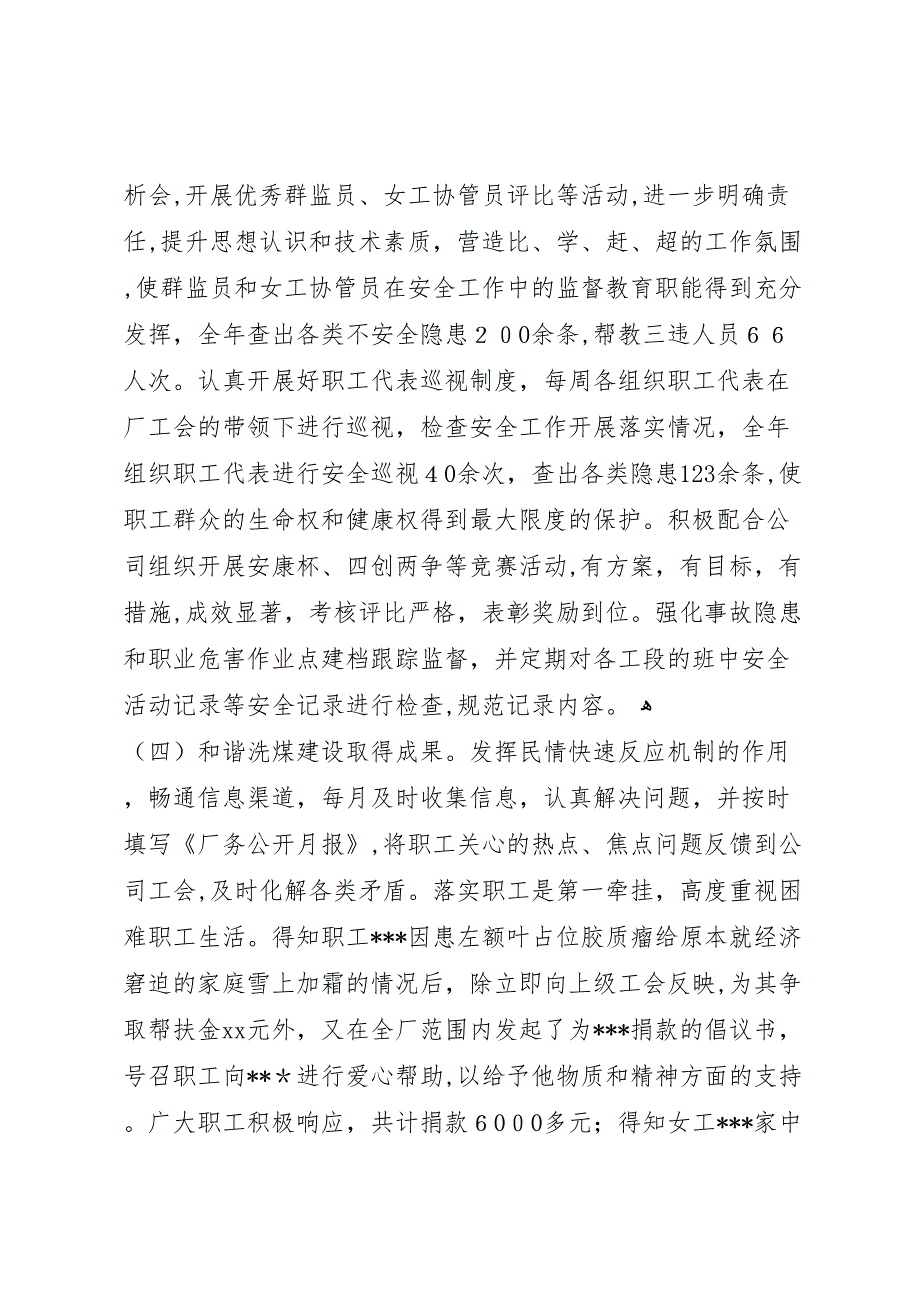 析会,开展优秀群监员、女工协管员评比等活动,进一步明确责
任,提升思想认识和技术素质，营造比、学、赶、超的工作氛围
,使群监员和女工协管员在安全工作中的监督教育职能得到充分
发挥，全年查出各类不安全隐患２00余条,帮教三违人员６６
人次。认真开展好职工代表巡视制度，每周各组织职工代表在
厂工会的带领下进行巡视，检查安全工作开展落实情况，全年
组织职工代表进行安全巡视４0余次，查出各类隐患123余条,使
职工群众的生命权和健康权得到最大限度的保护。积极配合公
司组织开展安康杯、四创两争等竞赛活动,有方案，有目标，有
措施,成效显著，考核评比严格，表彰奖励到位。强化事故隐患
和职业危害作业点建档跟踪监督，并定期对各工段的班中安全
活动记录等安全记录进行检查,规范记录内容。 ﻫ
（四）和谐洗煤建设取得成果。发挥民情快速反应机制的作用
，畅通信息渠道，每月及时收集信息，认真解决问题，并按时
填写《厂务公开月报》,将职工关心的热点、焦点问题反馈到公
司工会,及时化解各类矛盾。落实职工是第一牵挂，高度重视困
难职工生活。得知职工***因患左额叶占位胶质瘤给原本就经济
窘迫的家庭雪上加霜的情况后，除立即向上级工会反映,为其争
取帮扶金xx元外，又在全厂范围内发起了为***捐款的倡议书，
号召职工向**＊进行爱心帮助,以给予他物质和精神方面的支持
。广大职工积极响应，共计捐款６000多元；得知女工***家中